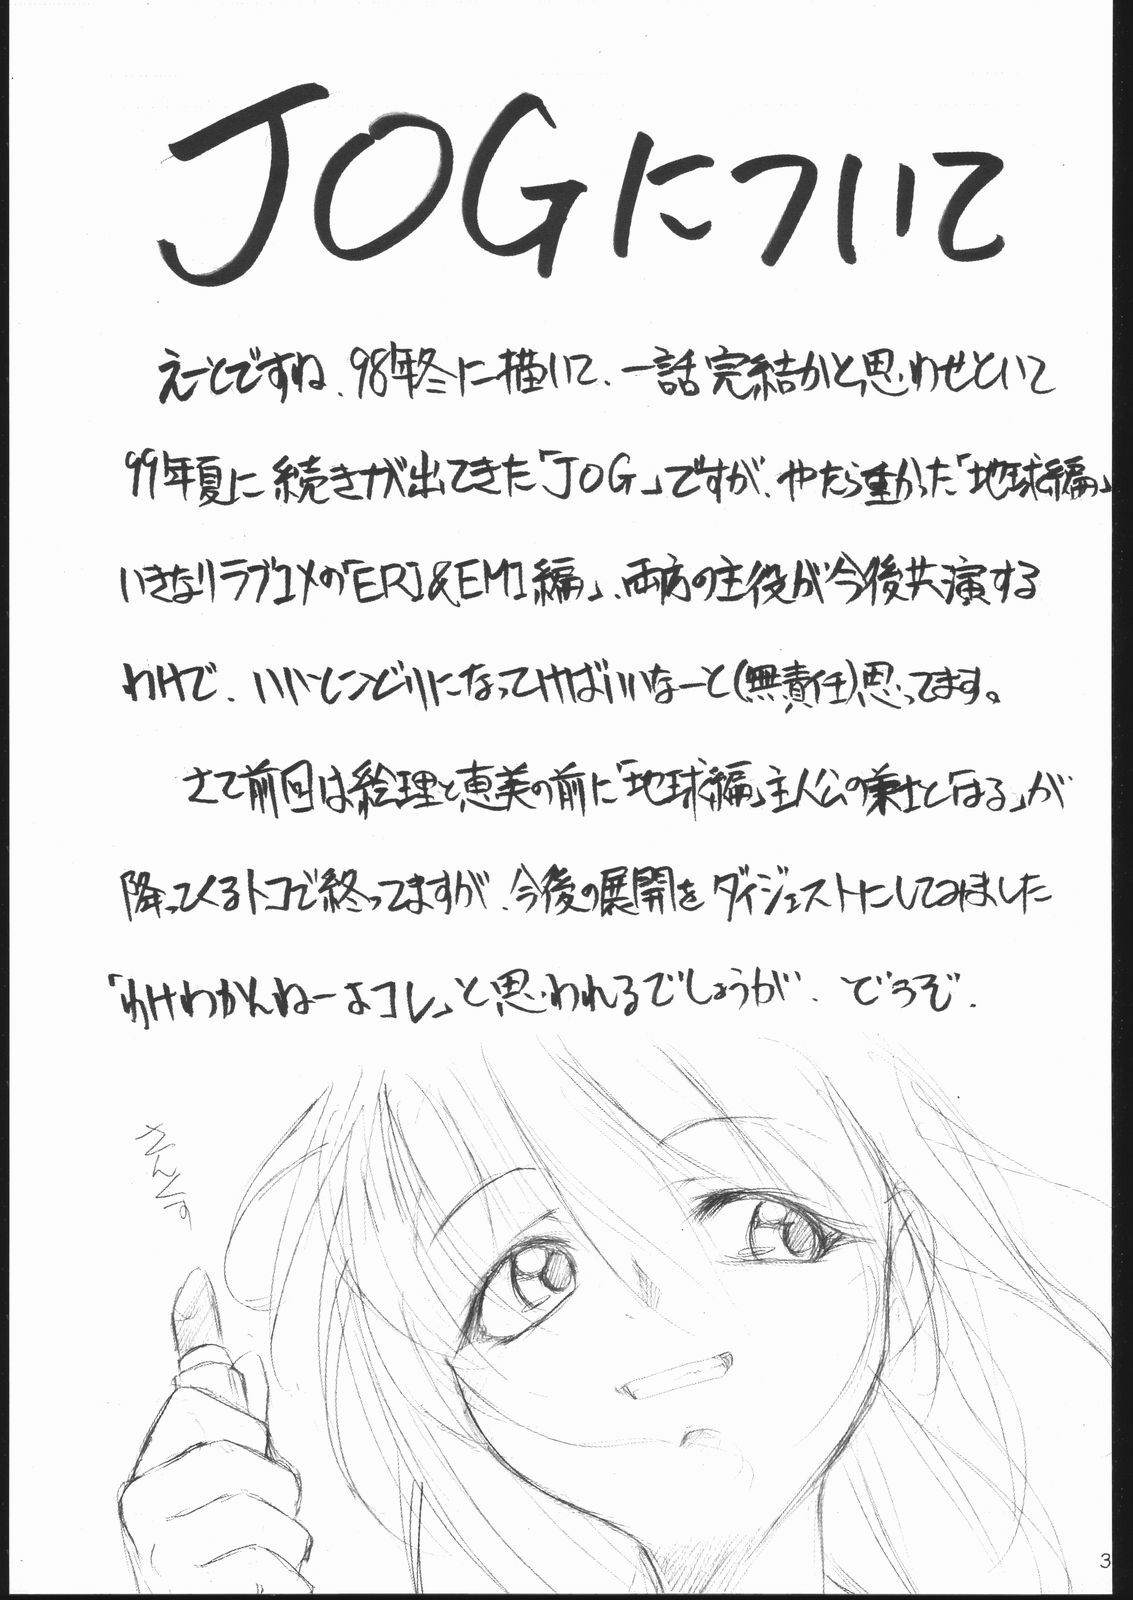 JOGについて
えーとですね、98年冬に描いて、一話完結かと思わせといて
99年夏に続きが出てきた「JOG」ですが、やたら重かった「地球編」
いきなりラブコメの「ERI&EMI編」、両方の主役が今後共演する
わけで、いいとこどりになってけばいいなーと(無責任)思ってます。
さて前回は絵理と恵美の前に「地球編」主人公の兼士と「はる」が
降ってくるトコで終ってますが、今後の展開をダイジェストにしてみました
「わけわかんねーよコレ」と思われるでしょうが、どうぞ.
3